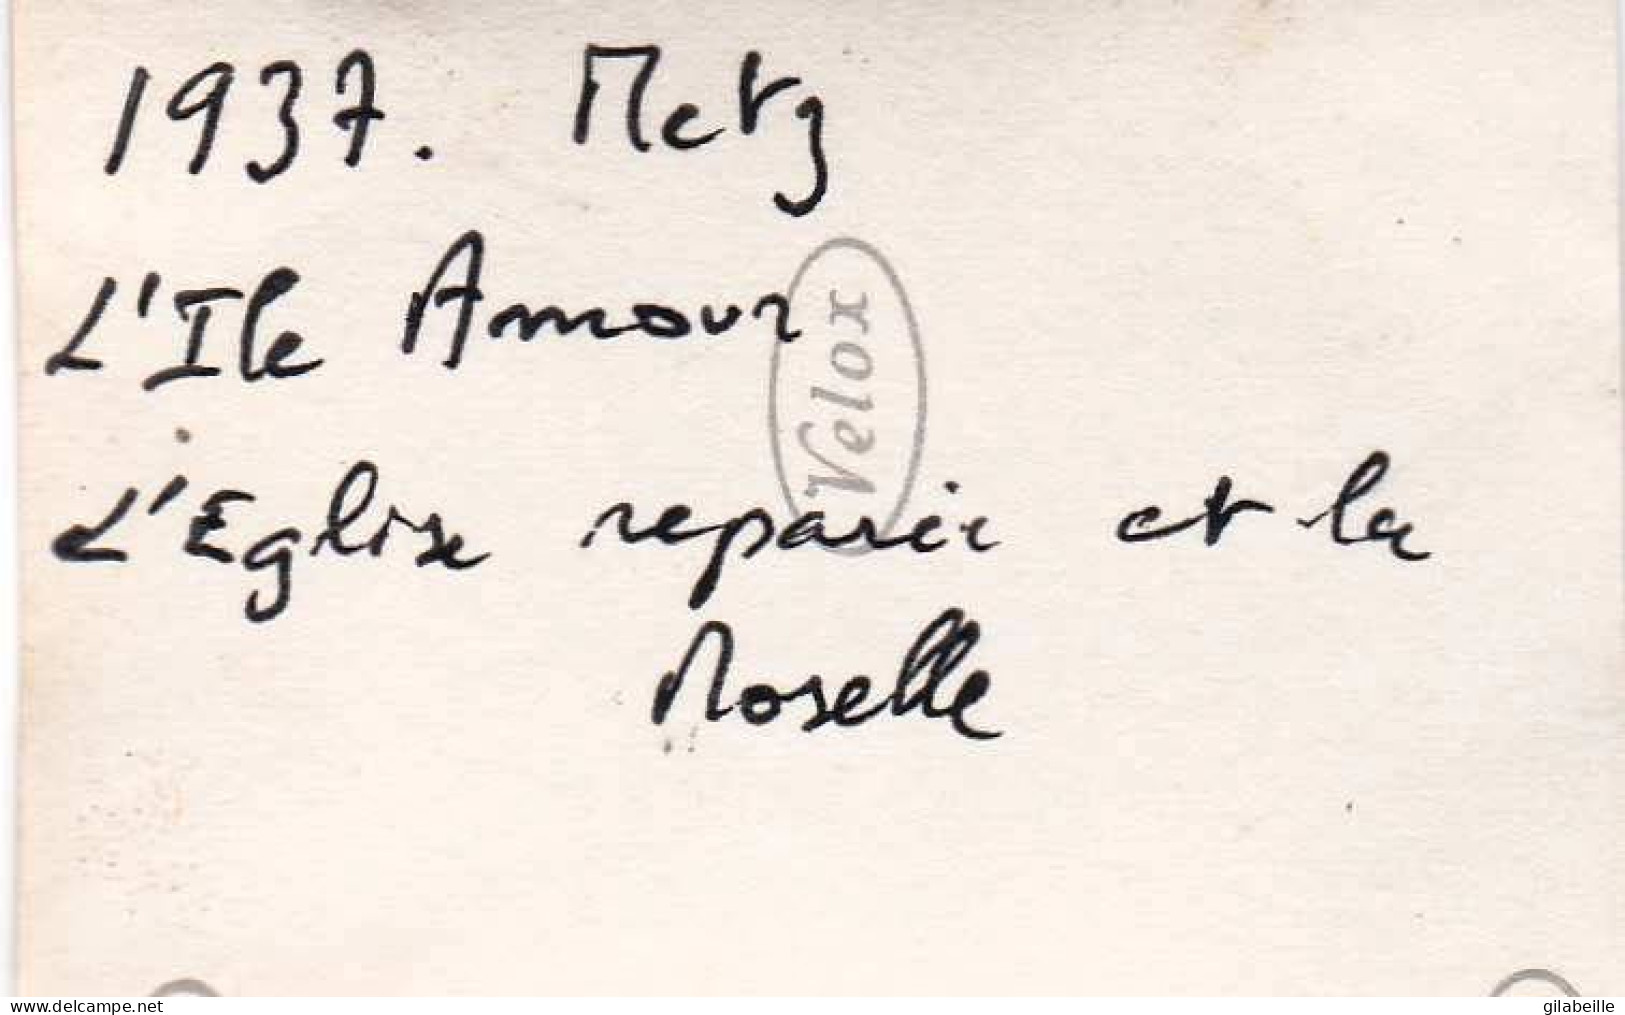 1937. Metz
L'Ile Amour
Velox
L'Eglise et la
Moselle
delcampe.net
gilabeille